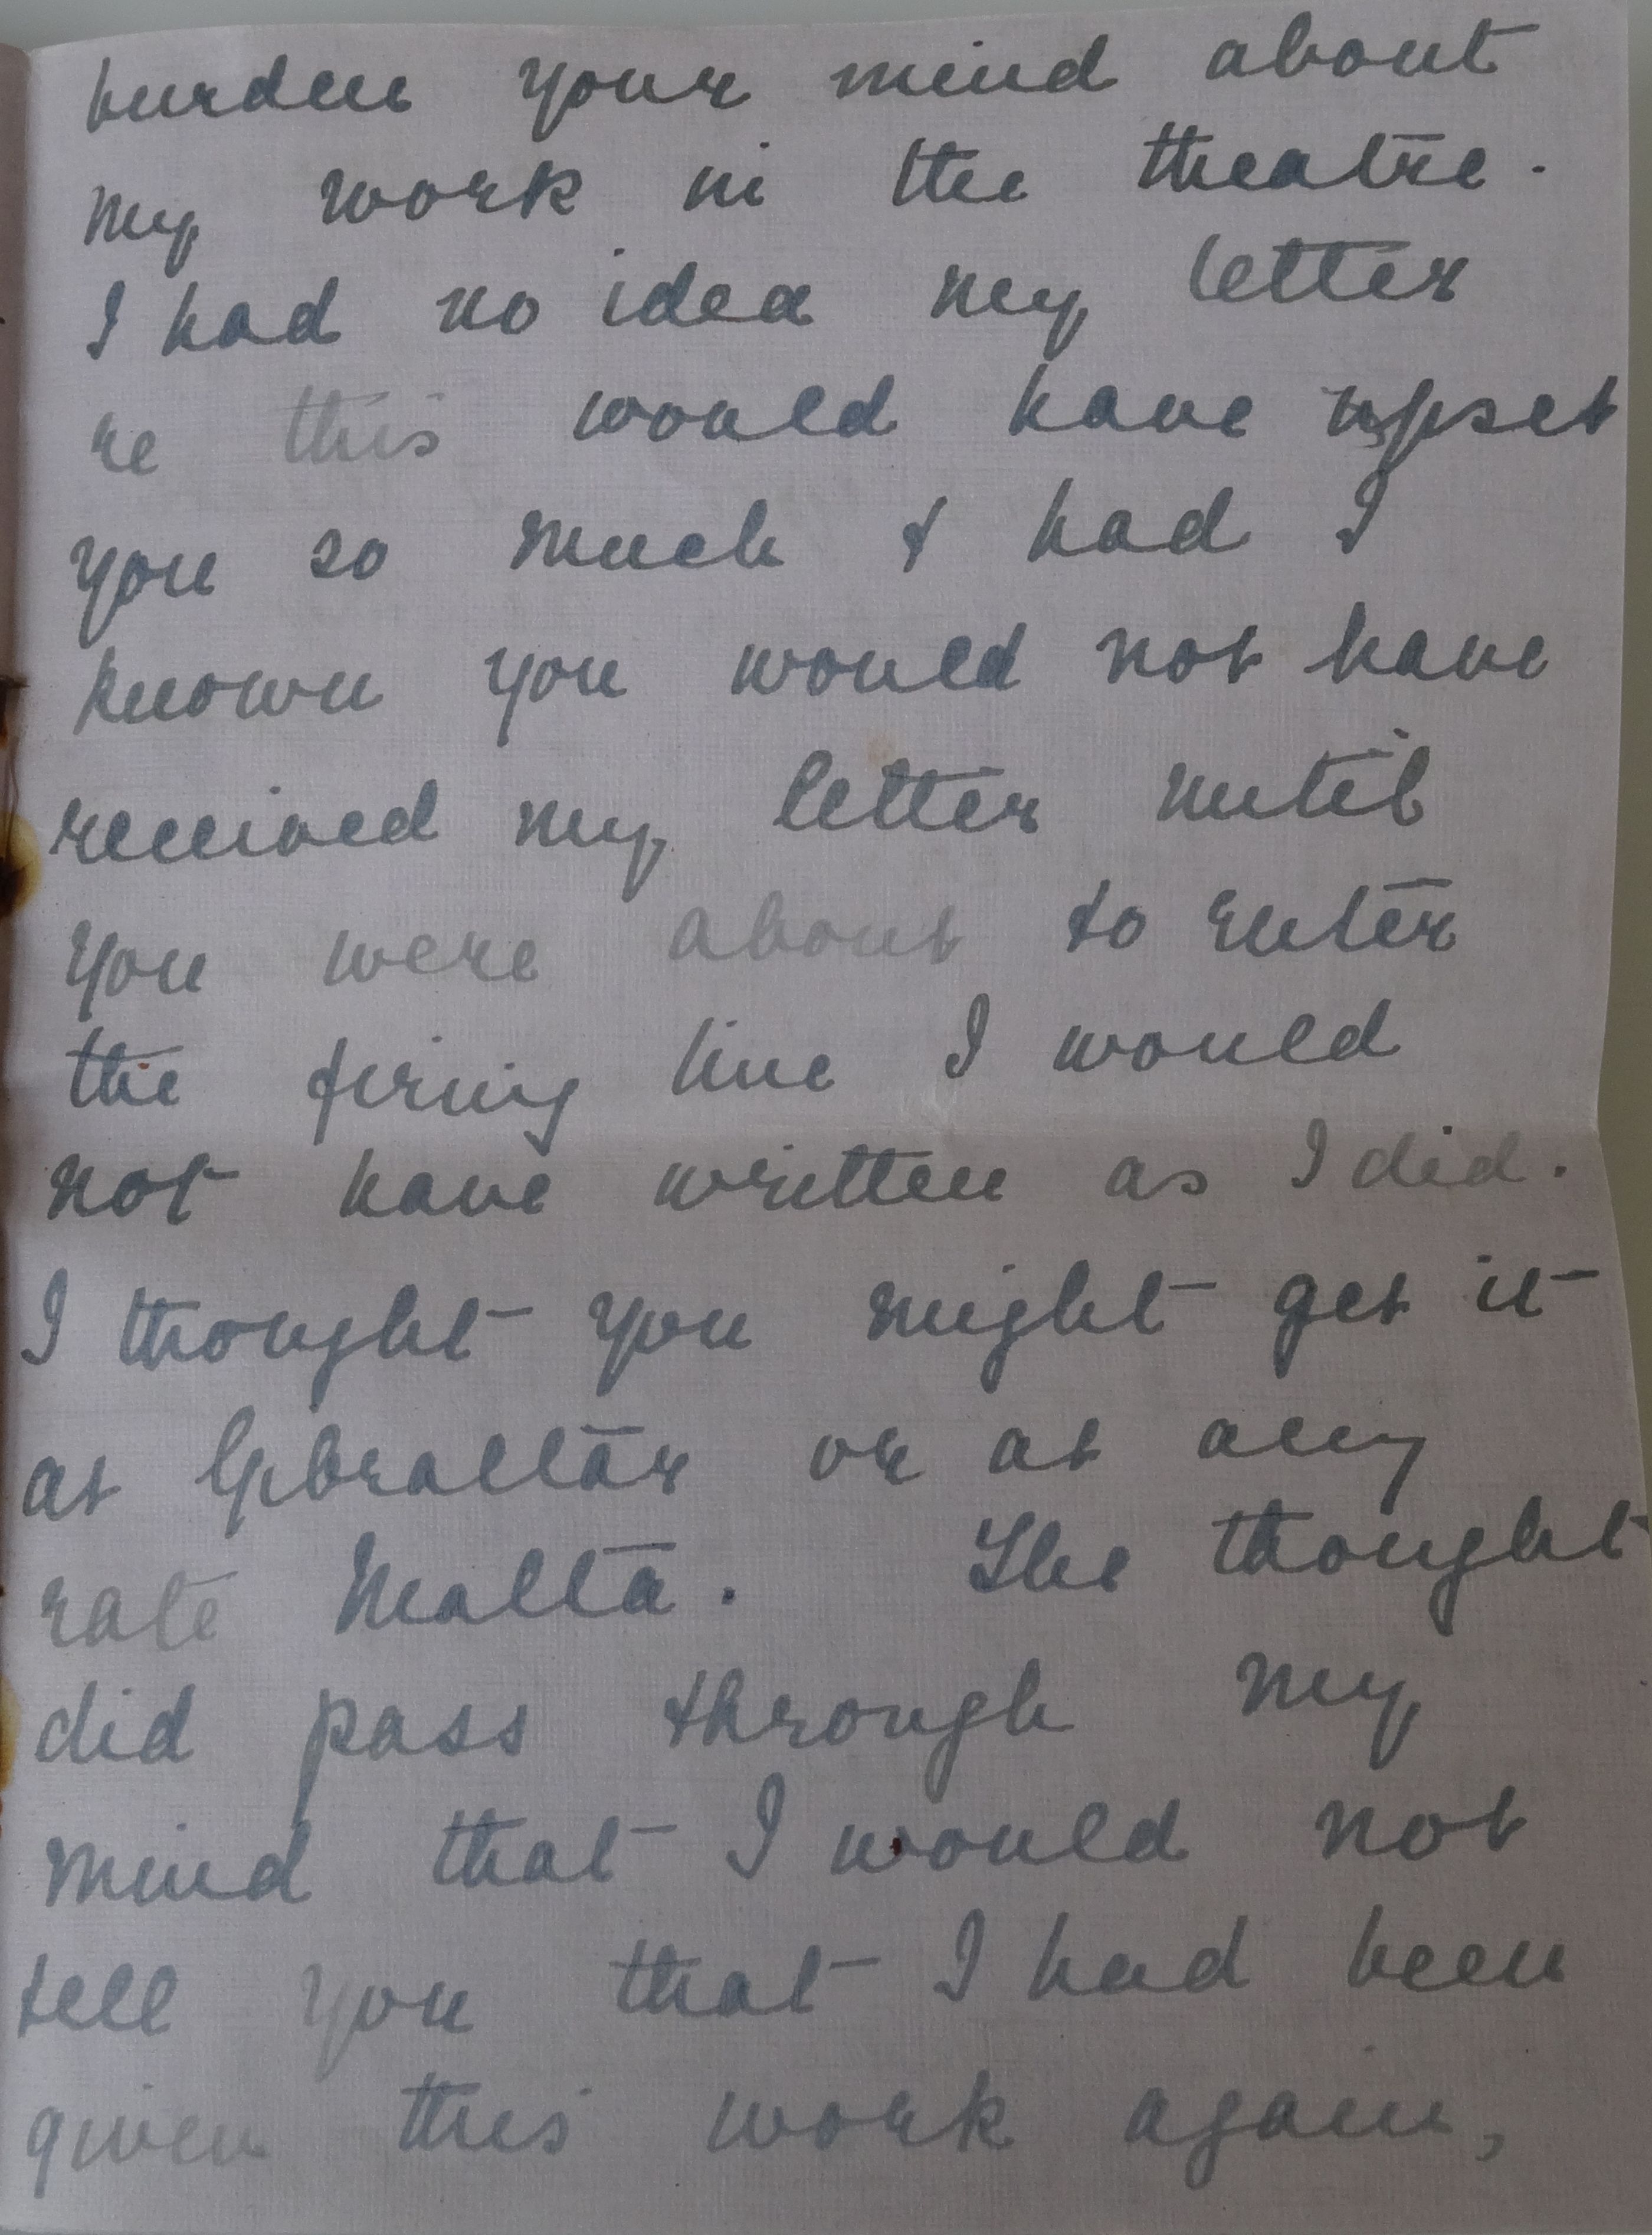 burden your mind about
my work in the theatre.
I had no idea my letter
re this would have upset
you so much & had I
known you would not have
received my letter until
you were about to enter
the firing line I would
not have written as I did.
I thought you might get it
at Gibraltar or at any
rate Malta. The thought
did pass through my
mind that I would not
tell you that I had been
given this work again,